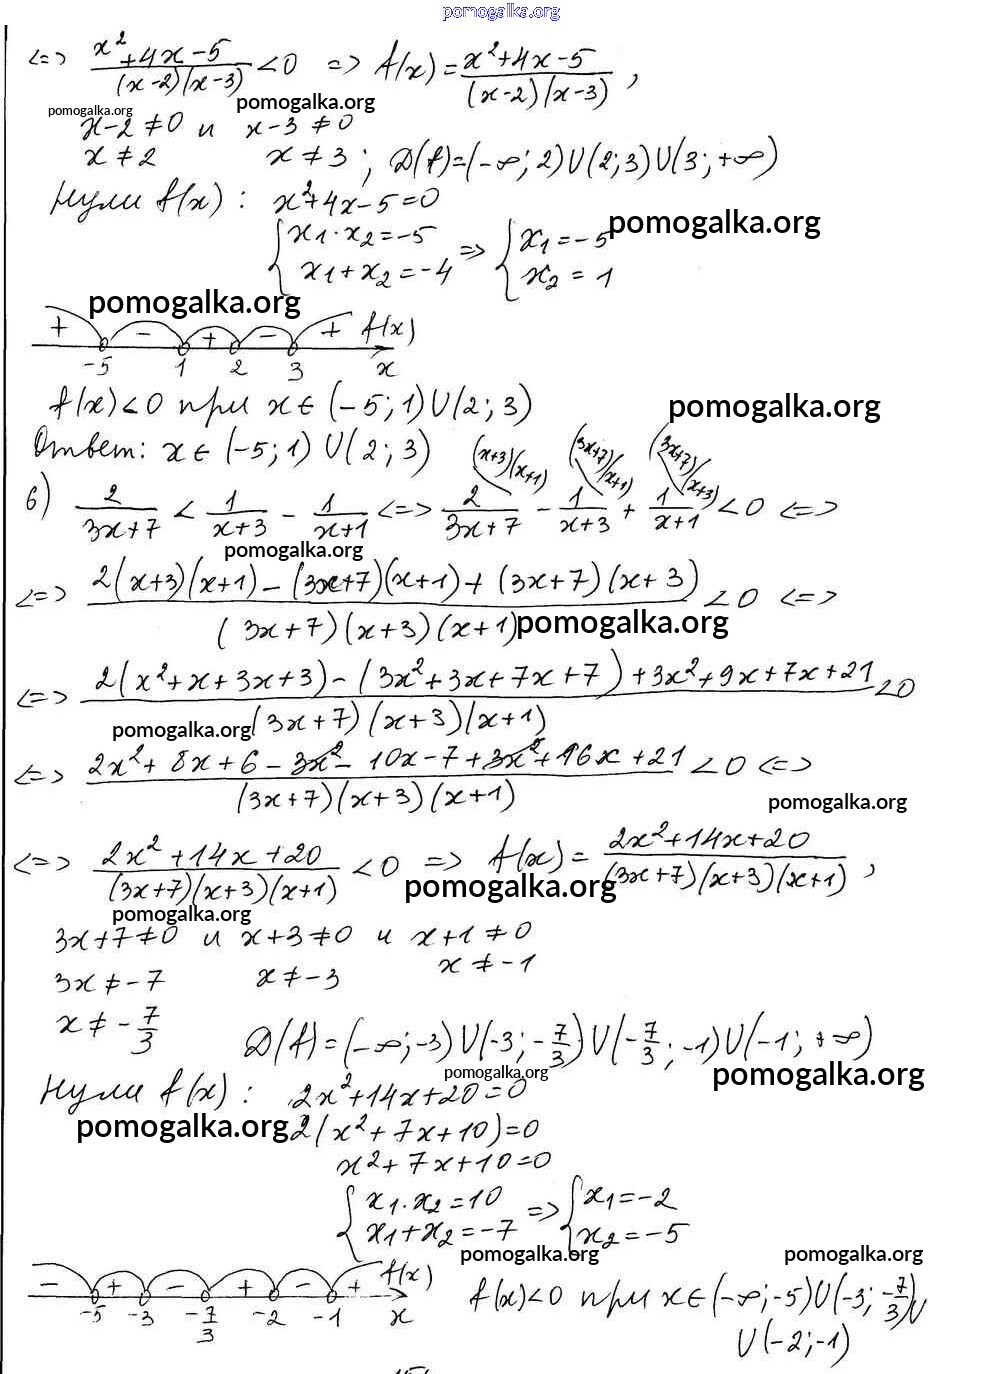 pomogalka.org
<=> (x²+4x-5)/((x-2)(x-3)) < 0 => f(x) = (x²+4x-5)/((x-2)(x-3)),
pomogalka.org pomogalka.org
x-2≠0 и x-3≠0
x≠2 x≠3; D(f)=(-∞; 2)U(2;3)U(3;+∞)
Нули f(x): x²+4x-5=0
pomogalka.org
{x₁·x₂=-5 x₁+x₂=-4 => {x₁=-5 x₂=1
pomogalka.org
+ - + - + f(x)
-5 1 2 3 x
f(x)<0 при x∈(-5;1)U(2;3)
pomogalka.org
Ответ: x∈(-5;1)U(2;3)
(x+3)(x+1) (3x+7)(x+1) (3x+7)(x+3)
в) 2/(3x+7) < 1/(x+3) - 1/(x+1) <=> 2/(3x+7) - 1/(x+3) + 1/(x+1) < 0 <=>
pomogalka.org
<=> (2(x+3)(x+1)-(3x+7)(x+1)+(3x+7)(x+3))/((3x+7)(x+3)(x+1)) < 0 <=>
pomogalka.org
<=> (2(x²+x+3x+3)-(3x²+3x+7x+7)+3x²+9x+7x+21)/((3x+7)(x+3)(x+1)) < 0
pomogalka.org
<=> (2x²+8x+6-3x²-10x-7+3x²+16x+21)/((3x+7)(x+3)(x+1)) < 0 <=>
pomogalka.org
<=> (2x²+14x+20)/((3x+7)(x+3)(x+1)) < 0 => f(x) = (2x²+14x+20)/((3x+7)(x+3)(x+1)),
pomogalka.org
pomogalka.org
3x+7≠0 и x+3≠0 и x+1≠0
3x≠-7 x≠-3 x≠-1
x≠-7/3 D(f)=(-∞;-3)U(-3;-7/3)U(-7/3;-1)U(-1;+∞)
pomogalka.org pomogalka.org
Нули f(x): 2x²+14x+20=0
pomogalka.org 2(x²+7x+10)=0
x²+7x+10=0
{x₁·x₂=10 x₁+x₂=-7 => {x₁=-2 x₂=-5
pomogalka.org pomogalka.org
- + - + - + f(x)
-5 -3 -7/3 -2 -1 x
f(x)<0 при x∈(-∞;-5)U(-3;-7/3)U
U(-2;-1)